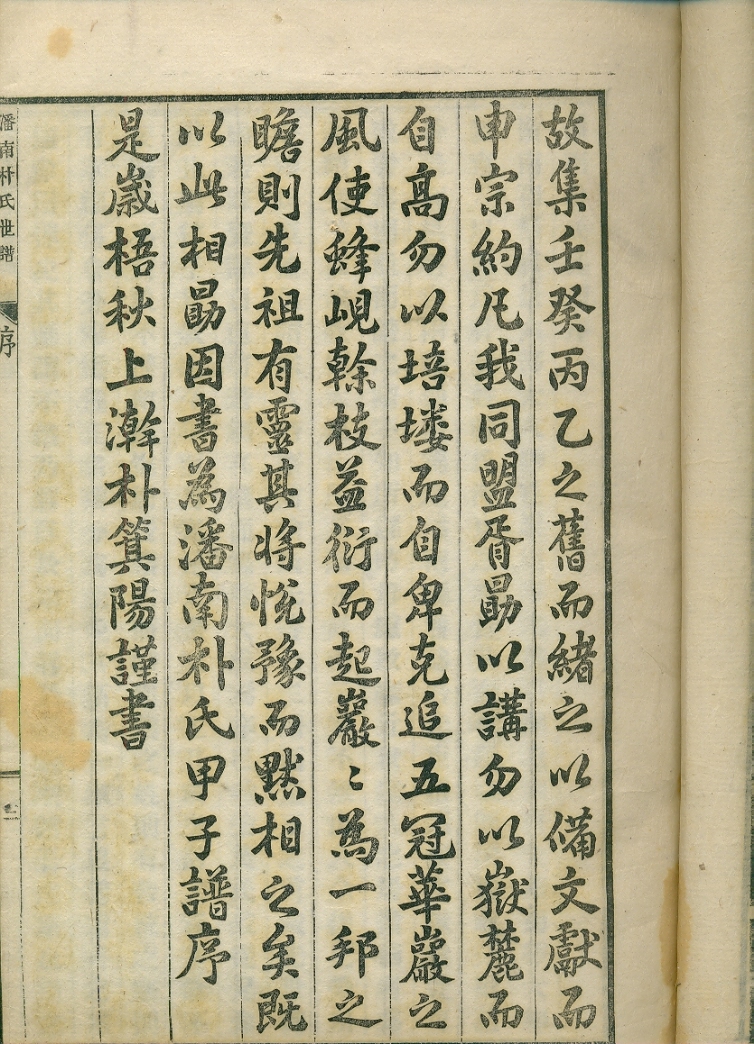 故集壬癸丙乙之舊而緖之以備文獻而
申宗約凡我同盟胥勗以講勿以嶽麓而
自高勿以培塿而自卑克追五冠華巖之
風使蜂峴榦枝益衍而起巖〻為一邦之
瞻則先祖有靈其將悅豫而黙相之矣既
以此相勗因書為潘南朴氏甲子譜序
是歲梧秋上澣朴箕陽謹書
潘南朴氏世譜
序